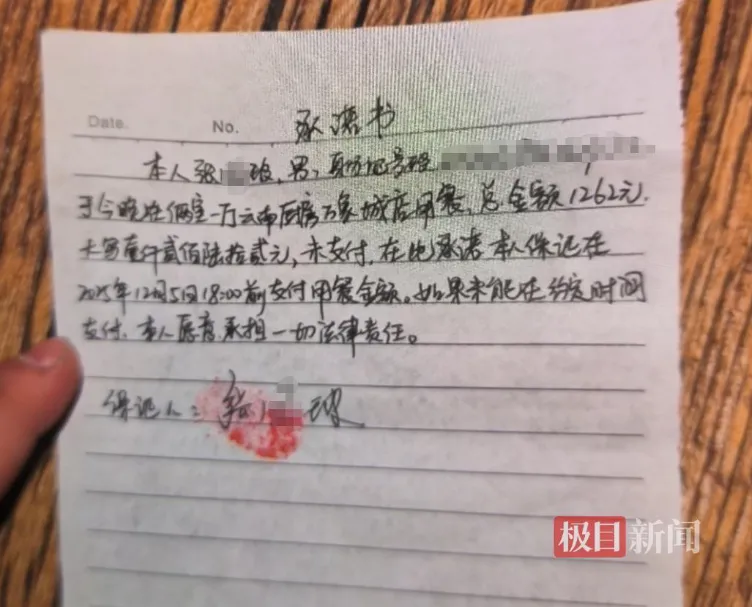 Date.
No.
承诺书
本人张 玻,男,身份证号码
于今晚在俩室一厅云南厨房万象城店用餐,总金额1262元.
大写壹仟贰佰陆拾贰元,未支付.在此承诺本人保证在
2025年12月5日18:00前支付用餐金额。如果未能在约定时间
支付.本人愿意承担一切法律责任。
保证人:张 玻
极目新闻